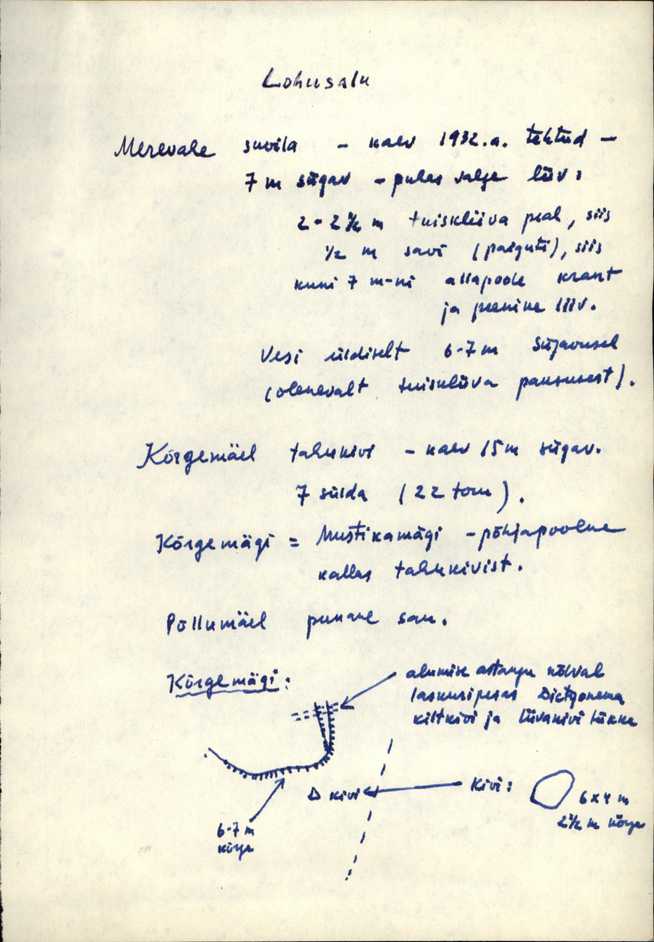 Lohusalu
Merevahe suvila - kaev 1932.a. tehtud -
7 m sügav - puhas valge liiv:
2-2½ m tuiskliiva peal, siis
½ m savi (paiguti), siis
kuni 7 m-ni allapoole krant
ja peenine liiv.
Vesi üldiselt 6-7 m sügavusel
(olenevalt tuiskliiva paksusest).
Kõrgemäel tahukivi - kaev 15 m sügav.
7 sülda (22 tom).
Kõrgemägi = Mustikamägi - põhjapoolne
kallas tahukivist.
Põllumäel punane savi.
Kõrgemägi:
alumise astangu nõlval
laskuripesas Dictyonema
kiltkivi ja liivakivi tükke
Δ kivi
Kivi:
6x4 m
2½ m kõrge
6-7 m
kõrge